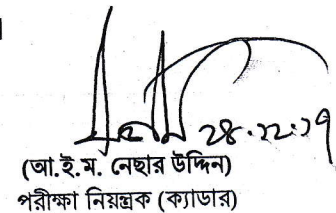 ২৪.১২.১৭
(আ.ই.ম. নেছার উদ্দিন)
পরীক্ষা নিয়ন্ত্রক (ক্যাডার)